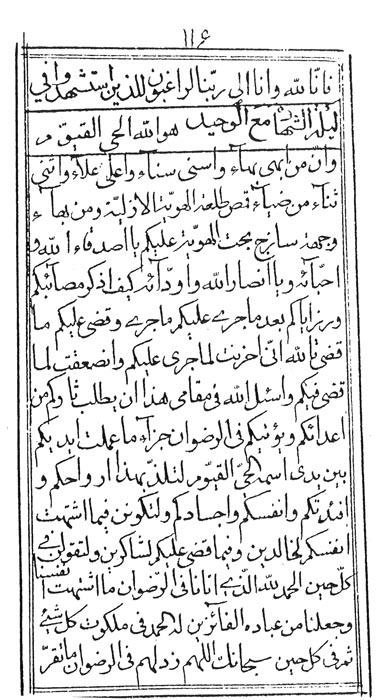 ١١۶
فانّا لله وانا الى ربّنا لراغبون للذين استشهدوا في
ليلة الشهادة مع الوحيد هو الله الحي القيوم
وانّ من ابهى بهاء واسنى سناء واعلى علاء واثنى
ثناء من ضياء قمص طلعة الهوية الازلية ومن بهاء
وجهة ساذج بحت الهوية عليكم يا اصدقاء الله و
احبّائه ويا انصار الله واودّائه كيف اذكر مصائبكم
ورزاياكم بعد ما جرى عليكم ما جرى وقضى عليكم ما
قضى تالله انّي احزنت لما جرى عليكم وانصعقت لما
قضى فيكم واسئل الله في مقامي هذا ان يطلب ثاركم من
اعدائكم ويؤتيكم في الرضوان جزاء ما عملت ايديكم
بين يدى اسمه الحيّ القيّوم لتلذّ بهذا ارواحكم و
افئدتكم وانفسكم واجسادكم ولتكونن فيما اشتهت
انفسكم لخالدين وفيما قضى عليكم لشاكرين ولتقولن في
كلّ حين الحمد لله الّذي اتانا في الرضوان ما اشتهت انفسنا
وجعلنا من عباده الفائزين له الحمد في ملكوت كل شيء
ثم في كل حين سبحانك اللهم زد لهم في الرضوان ما تقرّ